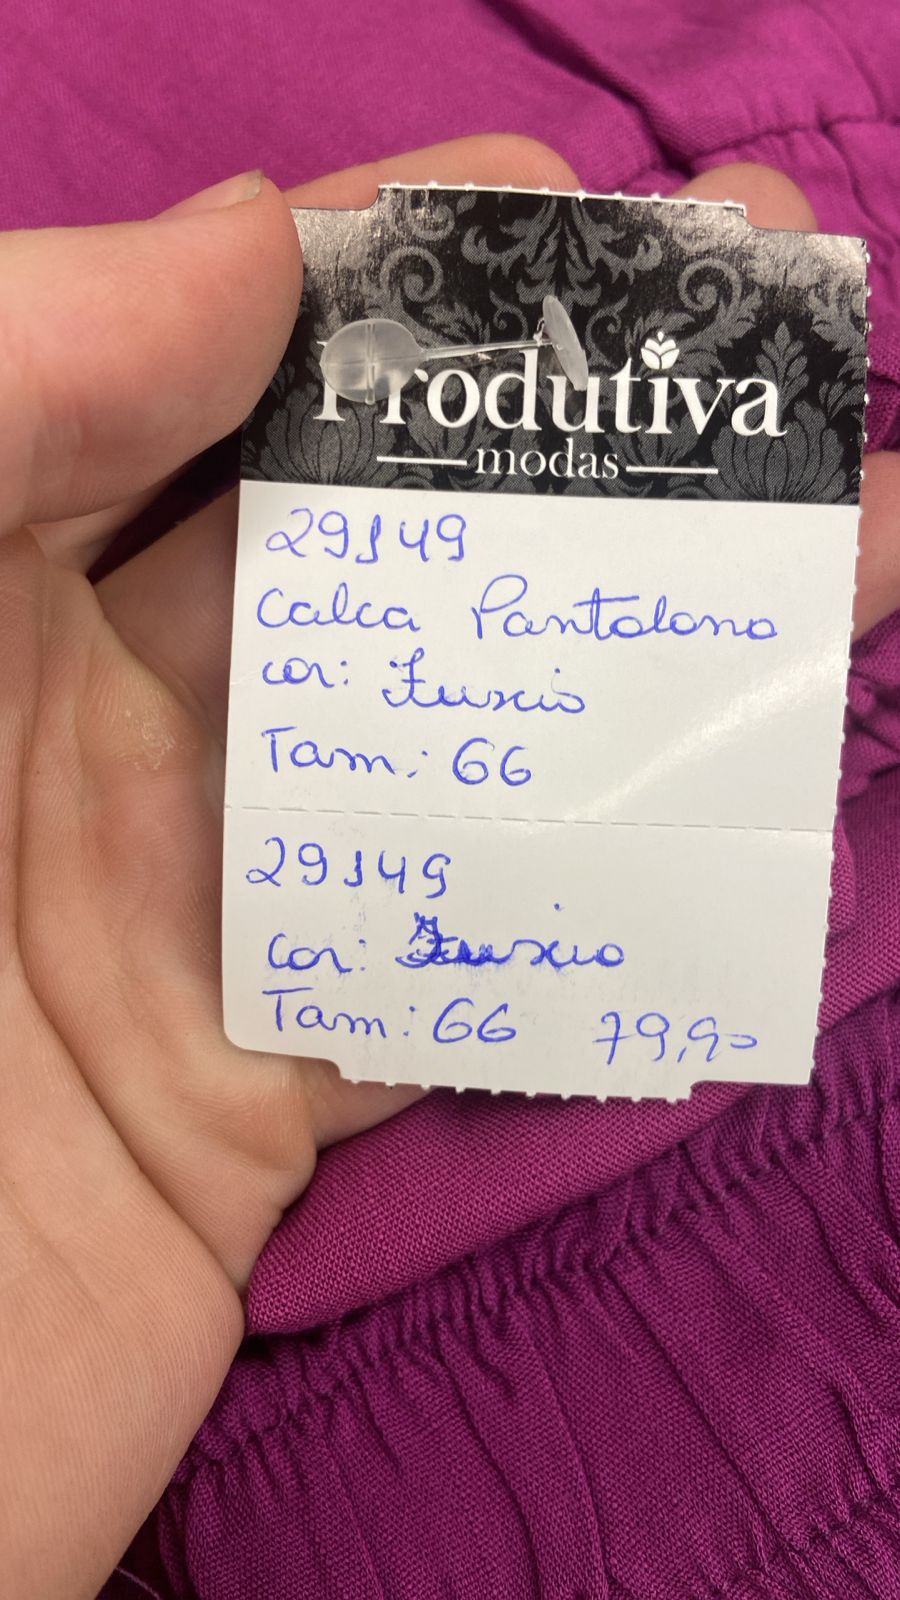 Produtiva
modas
29149
Calca Pantalona
cor: Fuxcia
Tam: 66
29149
cor: Fuxcia
Tam: 66 79,90